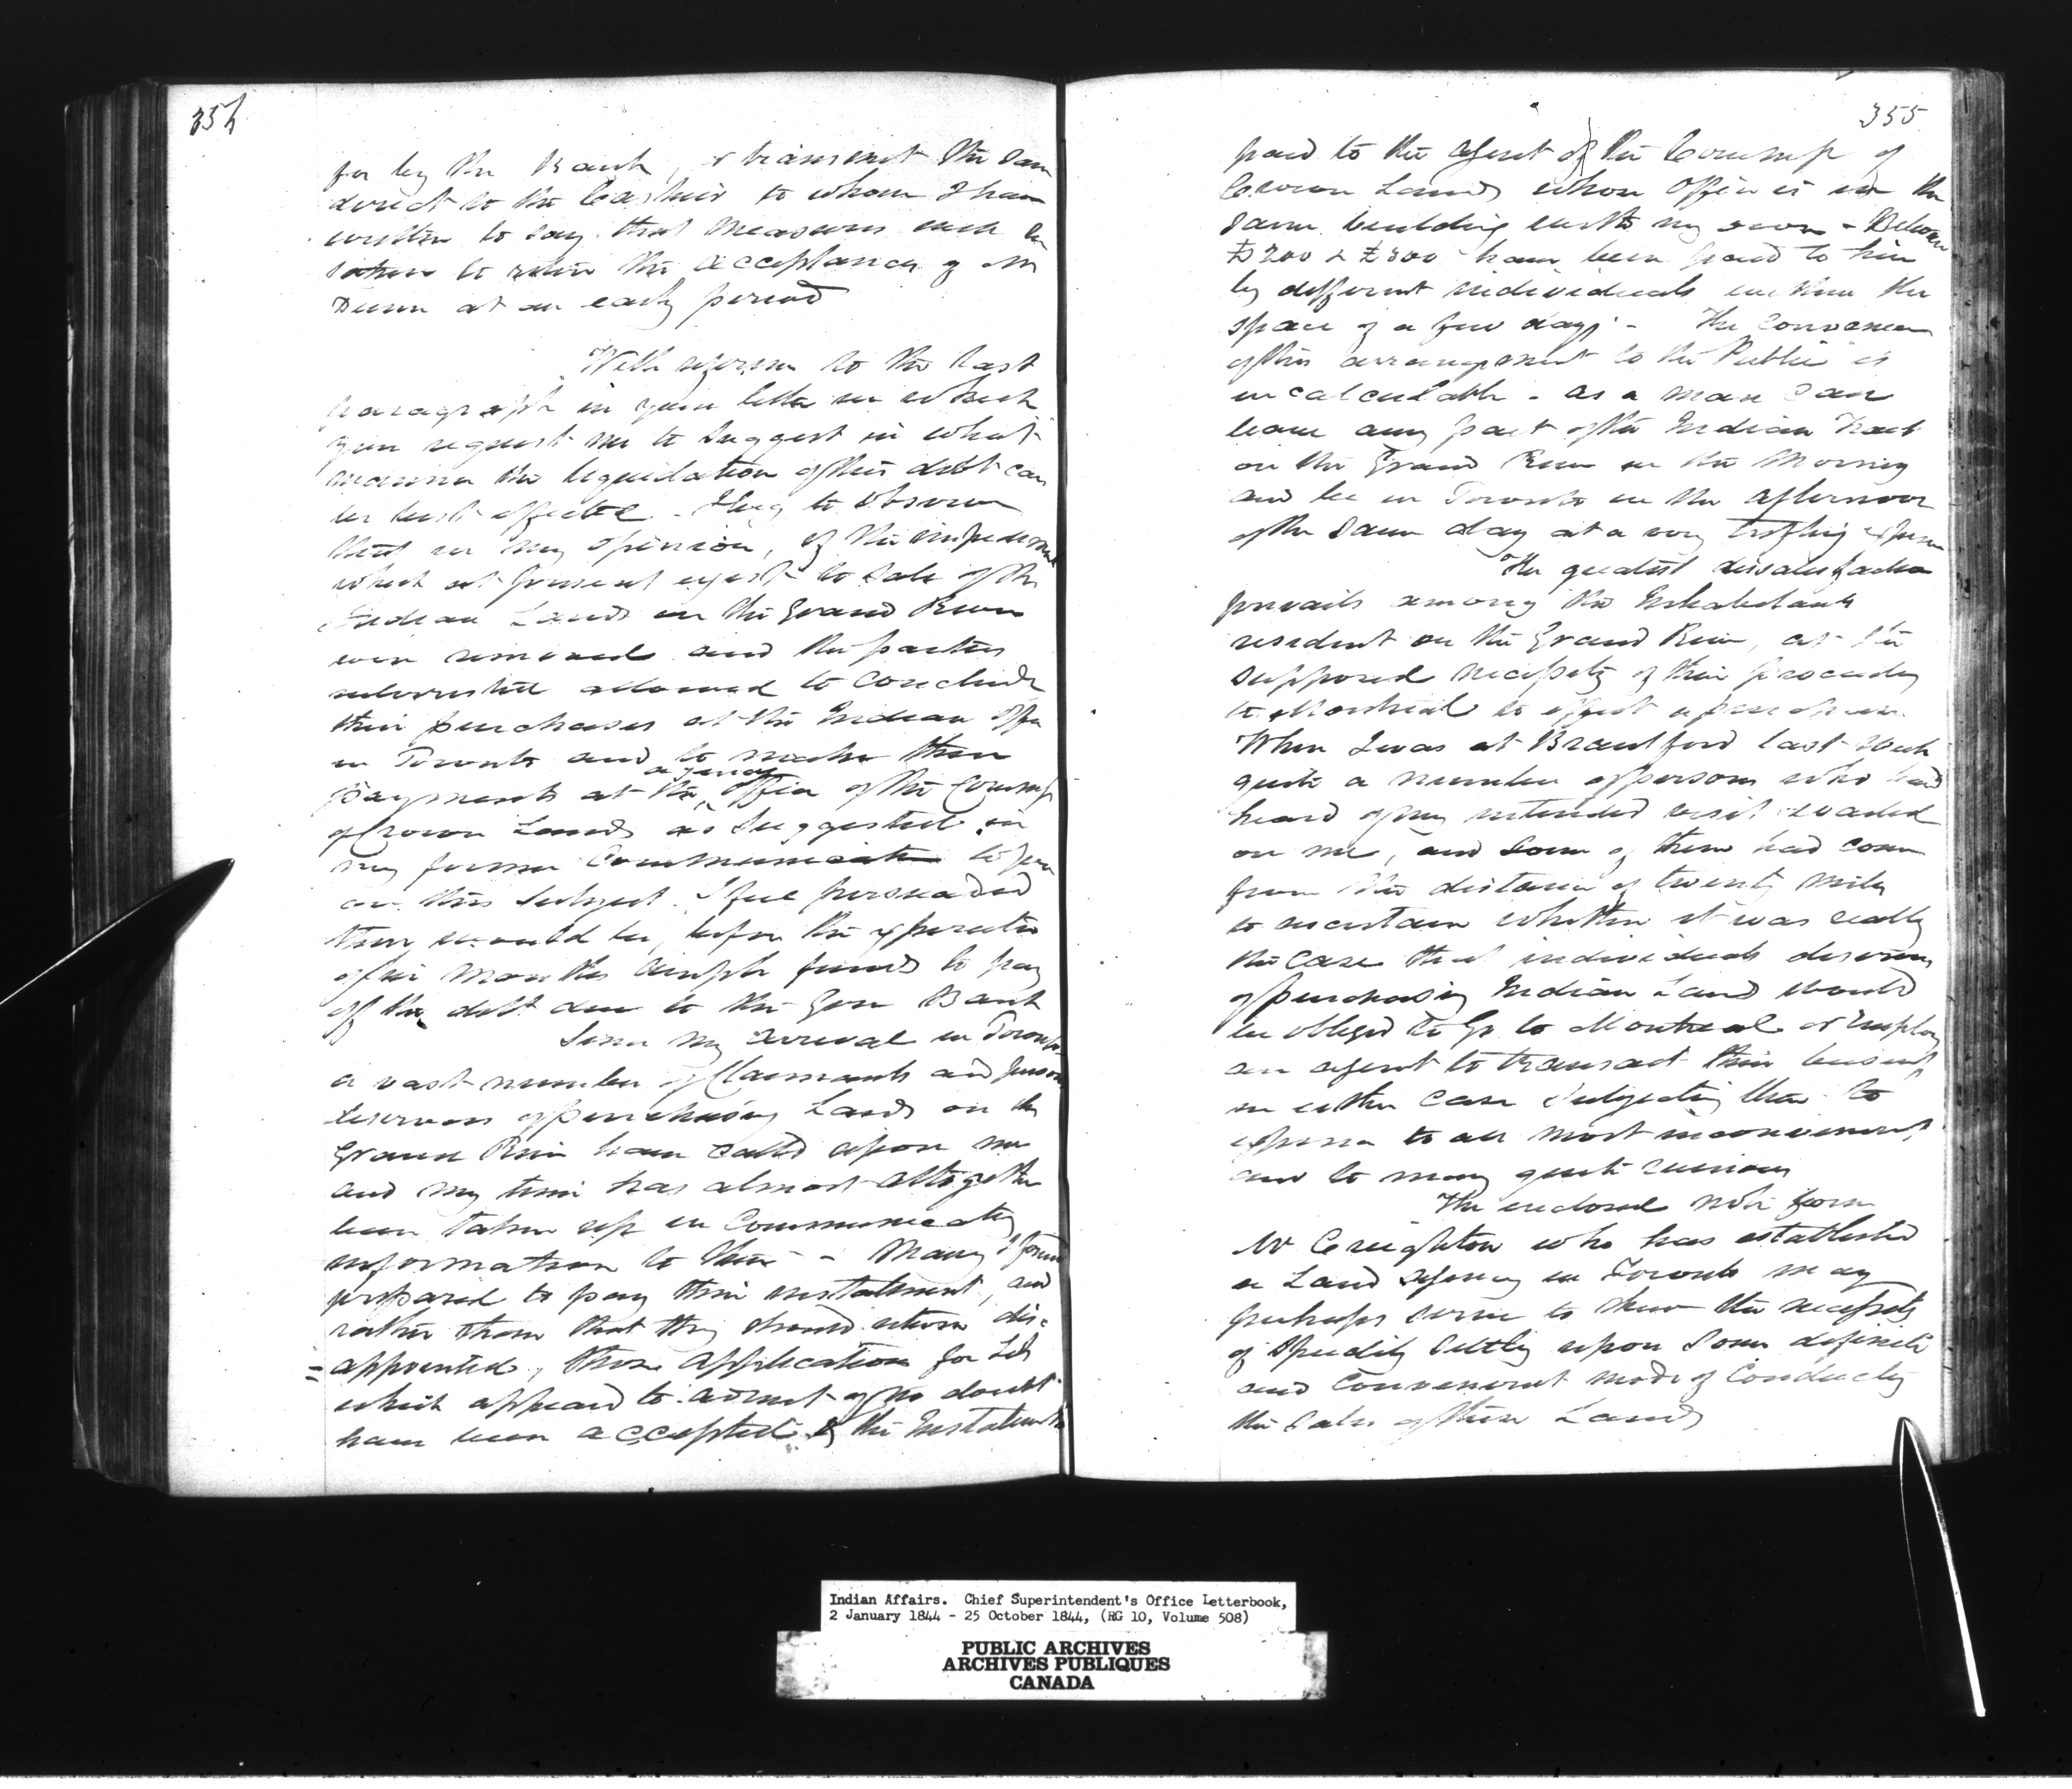 354
for by the Bank, & transmit the same
direct to the Cashier to whom I have
written to say that measures will be
taken to retire the acceptances of Mr
Dunn at an early period
With reference to the last
paragraph in your letter in which
you request me to suggest in what
manner the liquidation of this debt can
be best effected. I beg to observe
that in my opinion, if the impediments
which at present exist to sale of the
Indian Lands on the Grand River
were removed and the parties
interested allowed to conclude
their purchases at the Indian Office
in Toronto and to make their
payments at the agency Office of the Commr
of Crown Lands as suggested in
my former Communication to you
on this subject. I feel persuaded
there would be, before the expiration
of six months ample funds to pay
off the debt due to the Gore Bank
Since my arrival in Toronto
a vast number of Claimants and persons
desirous of purchasing Lands on the
Grand River have called upon me
and my time has almost altogether
been taken up in Communicating
information to them - Many I found
prepared to pay their instalment, and
rather than that they should return dis=
=appointed, those applications for Lots
which appeared to admit of no doubt
have been accepted & the Instalments
355
paid to the Agent of the Commr of
Crown Lands whose Office is in the
same building with my own - Between
£200 & £300 have been paid to him
by different individuals within the
space of a few days - The convenience
of this arrangement to the Public is
incalculable - as a man can
leave any part of the Indian Tract
on the Grand River in the Morning
and be in Toronto in the afternoon
of the same day at a very trifling expense
The greatest dissatisfaction
prevails among the Inhabitants
resident on the Grand River, at the
supposed necessity of their proceeding
to Montreal to effect a purchase.
When I was at Brantford last Week
quite a number of persons who had
heard of my intended visit waited
on me, and some of them had come
from the distance of twenty miles
to ascertain whether it was really
the case that individuals desirous
of purchasing Indian Land would
be obliged to go to Montreal or employ
an agent to transact their business
in either case subjecting them to
expense to all most inconvenient,
and to many quite ruinous
The enclosed note from
Mr Creighton who has established
a Land Agency in Toronto may
perhaps serve to shew the necessity
of speedily settling upon some definite
and convenient mode of Conducting
the sales of these Lands
Indian Affairs. Chief Superintendent's Office Letterbook,
2 January 1844 - 25 October 1844, (RG 10, Volume 508)
PUBLIC ARCHIVES
ARCHIVES PUBLIQUES
CANADA